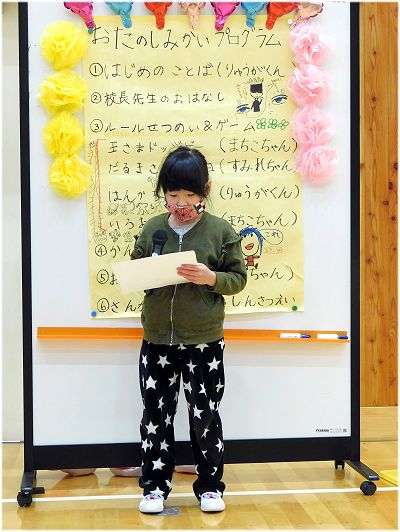 おたのしみかいプログラム
①はじめの ことば(りゅうがくん
②校長先生のおはなし
③ルールせつめい&ゲーム
王さまドッジ (まちこちゃん)
だるま (すみれちゃん)
はんか (りゅうがくん)
いろ (まちこちゃん)
④か
⑤お ちゃん)
⑥さん しんさつえい